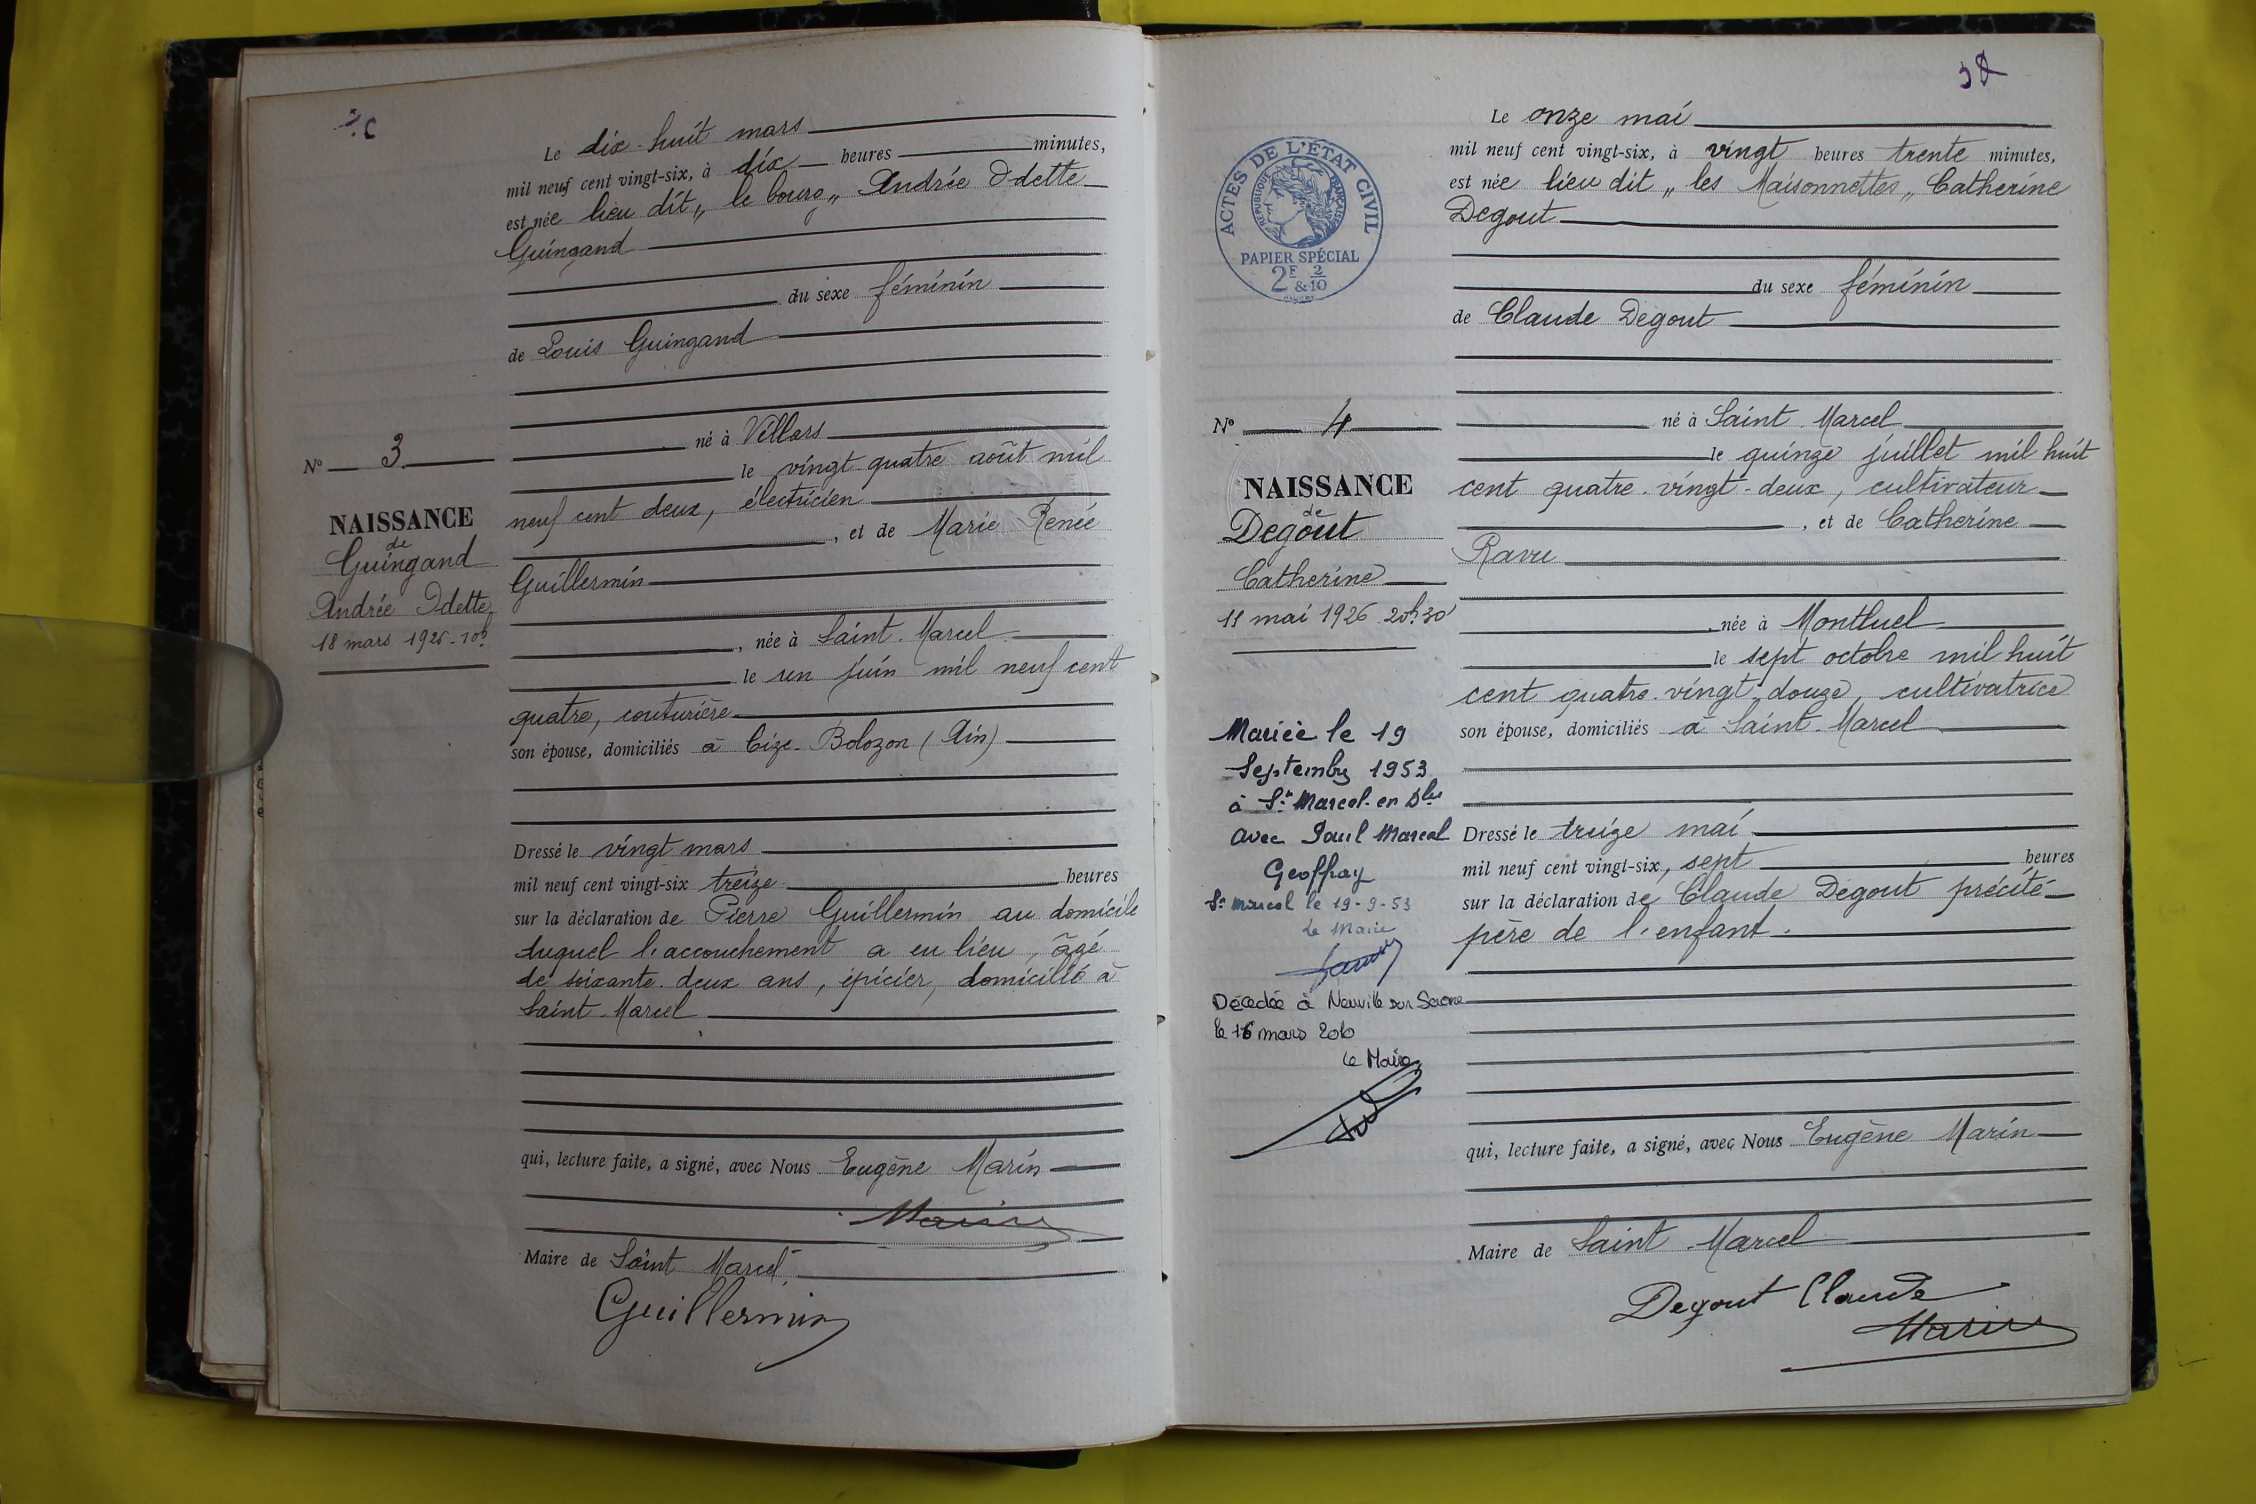 Le dix-huit mars
mil neuf cent vingt-six, à dix heures minutes,
est née lieu dit „ le bourg „ Andrée Odette
Guingand
du sexe féminin
de Louis Guingand
né à Villars
le vingt quatre août mil
neuf cent deux, électricien
, et de Marie Renée
Guillermin
, née à Saint-Marcel
le un juin mil neuf cent
quatre, couturière
son épouse, domiciliés à Cize-Bolozon (Ain)
Dressé le vingt mars
mil neuf cent vingt-six treize heures
sur la déclaration de Pierre Guillermin au domicile
duquel l'accouchement a eu lieu, âgé
de soixante-deux ans, épicier, domicilié à
Saint-Marcel
qui, lecture faite, a signé, avec Nous Eugène Marin
Marin
Maire de Saint Marcel
Guillermin
N° 3
NAISSANCE
de
Guingand
Andrée Odette
18 mars 1926-10h
ACTES DE L'ÉTAT CIVIL
RÉPUBLIQUE FRANÇAISE
PAPIER SPÉCIAL
2F & 2/10
N° 4
NAISSANCE
de
Degout
Catherine
11 mai 1926 20h30
Mariée le 19
Septembre 1953
à St Marcel-en Dbes
avec Paul Marcel
Geoffray
St Marcel le 19-9-53
Le Maire
Décédée à Neuville sur Saone
le 16 mars 2010
Le Maire
Le onze mai
mil neuf cent vingt-six, à vingt heures trente minutes,
est née lieu dit „ les Maisonnettes „ Catherine
Degout
du sexe féminin
de Claude Degout
né à Saint-Marcel
le quinze juillet mil huit
cent quatre-vingt-deux, cultivateur
, et de Catherine
Ravu
, née à Montluel
le sept octobre mil huit
cent quatre-vingt-douze, cultivatrice
son épouse, domiciliés à Saint-Marcel
Dressé le treize mai
mil neuf cent vingt-six, sept heures
sur la déclaration de Claude Degout précité
père de l'enfant.
qui, lecture faite, a signé, avec Nous Eugène Marin
Maire de Saint-Marcel
Degout Claude
Marin